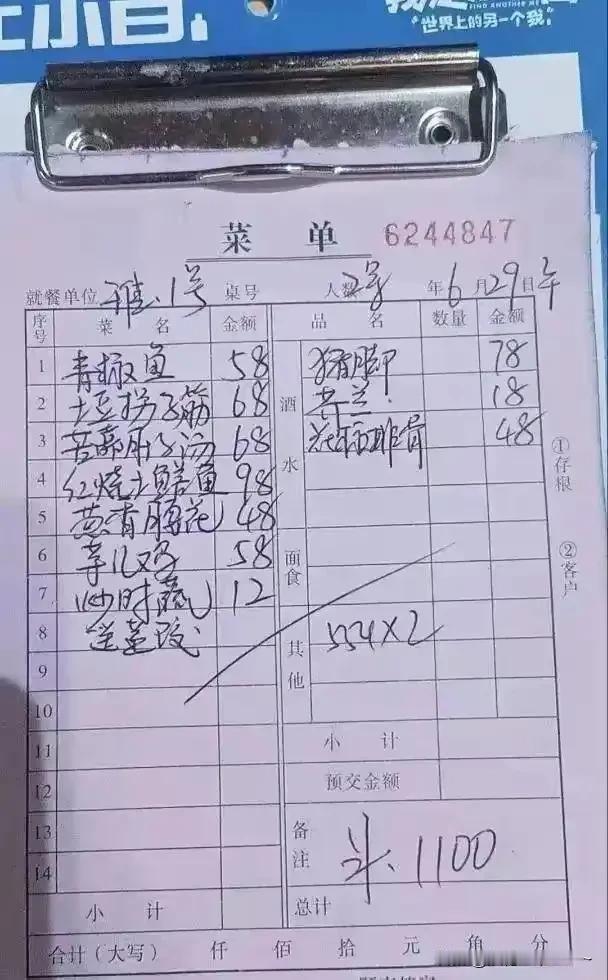 世界上的另一个我
菜 单 6244847
就餐单位 雅.1号 桌号 人数 2号 年6月29日午
序号 菜 名 金额 品 名 数量 金额
1 青椒鱼 58 酒水 猪脚 78
2 土豆拐子筋 68 芥兰 18
3 肝子汤 68 排骨 48
4 红烧土鳝鱼 98
5 葱香腰花 48
6 芋儿鸡 58 面食
7 炒时蔬 12
8 送 其他 554×2
9
10
11 小 计
12 预交金额
13 备注 1100
14
小 计 总计
合计(大写) 仟 佰 拾 元 角 分
①存根
②客户